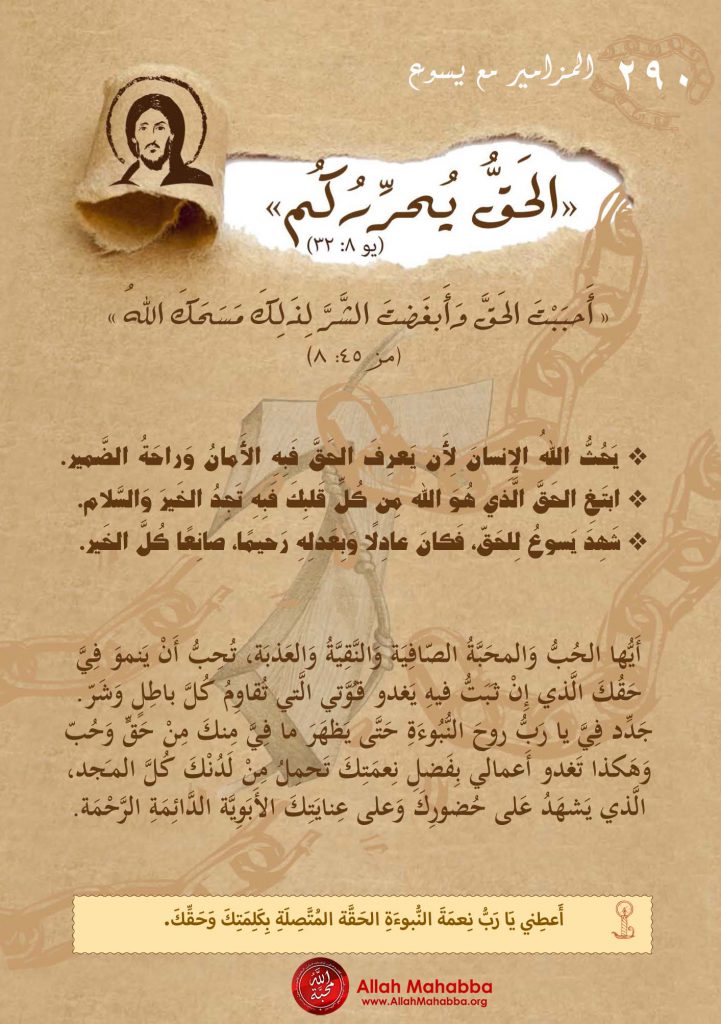 ٢٩٠ المزامير مع يسوع
«الحَقُّ يُحرِّرُكُم»
(يو ٨: ٣٢)
« أَحبَبْتَ الحَقَّ وَأَبغَضتَ الشَّرَّ لِذَلِكَ مَسَحَكَ اللهُ »
(مز ٤٥: ٨)
❖ يَحُثُّ اللهُ الإنسان لِأَن يَعرِفَ الحَقَّ فَبِه الأَمانُ وَراحَةُ الضَّمير.
❖ ابتَغِ الحَقَّ الَّذي هُوَ الله مِن كُلِّ قَلبِكَ فَبِهِ تَجدُ الخَيرَ وَالسَّلام.
❖ شَهِدَ يَسوعُ لِلحَقّ، فَكانَ عادِلًا وَبِعَدلِهِ رَحيمًا، صانِعًا كُلَّ الخَير.
أَيُّها الحُبُّ وَالمحَبَّةُ الصّافِيَة وَالنَّقِيَّةُ وَالعَذبَة، تُحِبُّ أَنْ يَنموَ فِيَّ
حَقُكَ الَّذي إِنْ ثَبَتُّ فيهِ يَغدو قُوَّتي الَّتي تُقاوِمُ كُلَّ باطِلٍ وَشَرّ.
جَدِّد فِيَّ يا رَبُّ روحَ النُّبُوءَةِ حَتَّى يَظهَرَ ما فِيَّ مِنكَ مِنْ حَقٍّ وَحُبّ
وَهَكذا تَغدو أَعمالي بِفَضلِ نِعمَتِكَ تَحمِلُ مِنْ لَدُنْكَ كُلَّ المَجد،
الَّذي يَشهَدُ عَلى حُضورِكَ وَعلى عِنايَتِكَ الأَبَوِيَّة الدَّائِمَةِ الرَّحْمَة.
أَعطِني يَا رَبُّ نِعمَةَ النُّبوءَةِ الحَقَّة المُتَّصِلَةِ بِكَلِمَتِكَ وَحَقِّكَ.
الله محبة
Allah Mahabba
www.AllahMahabba.org